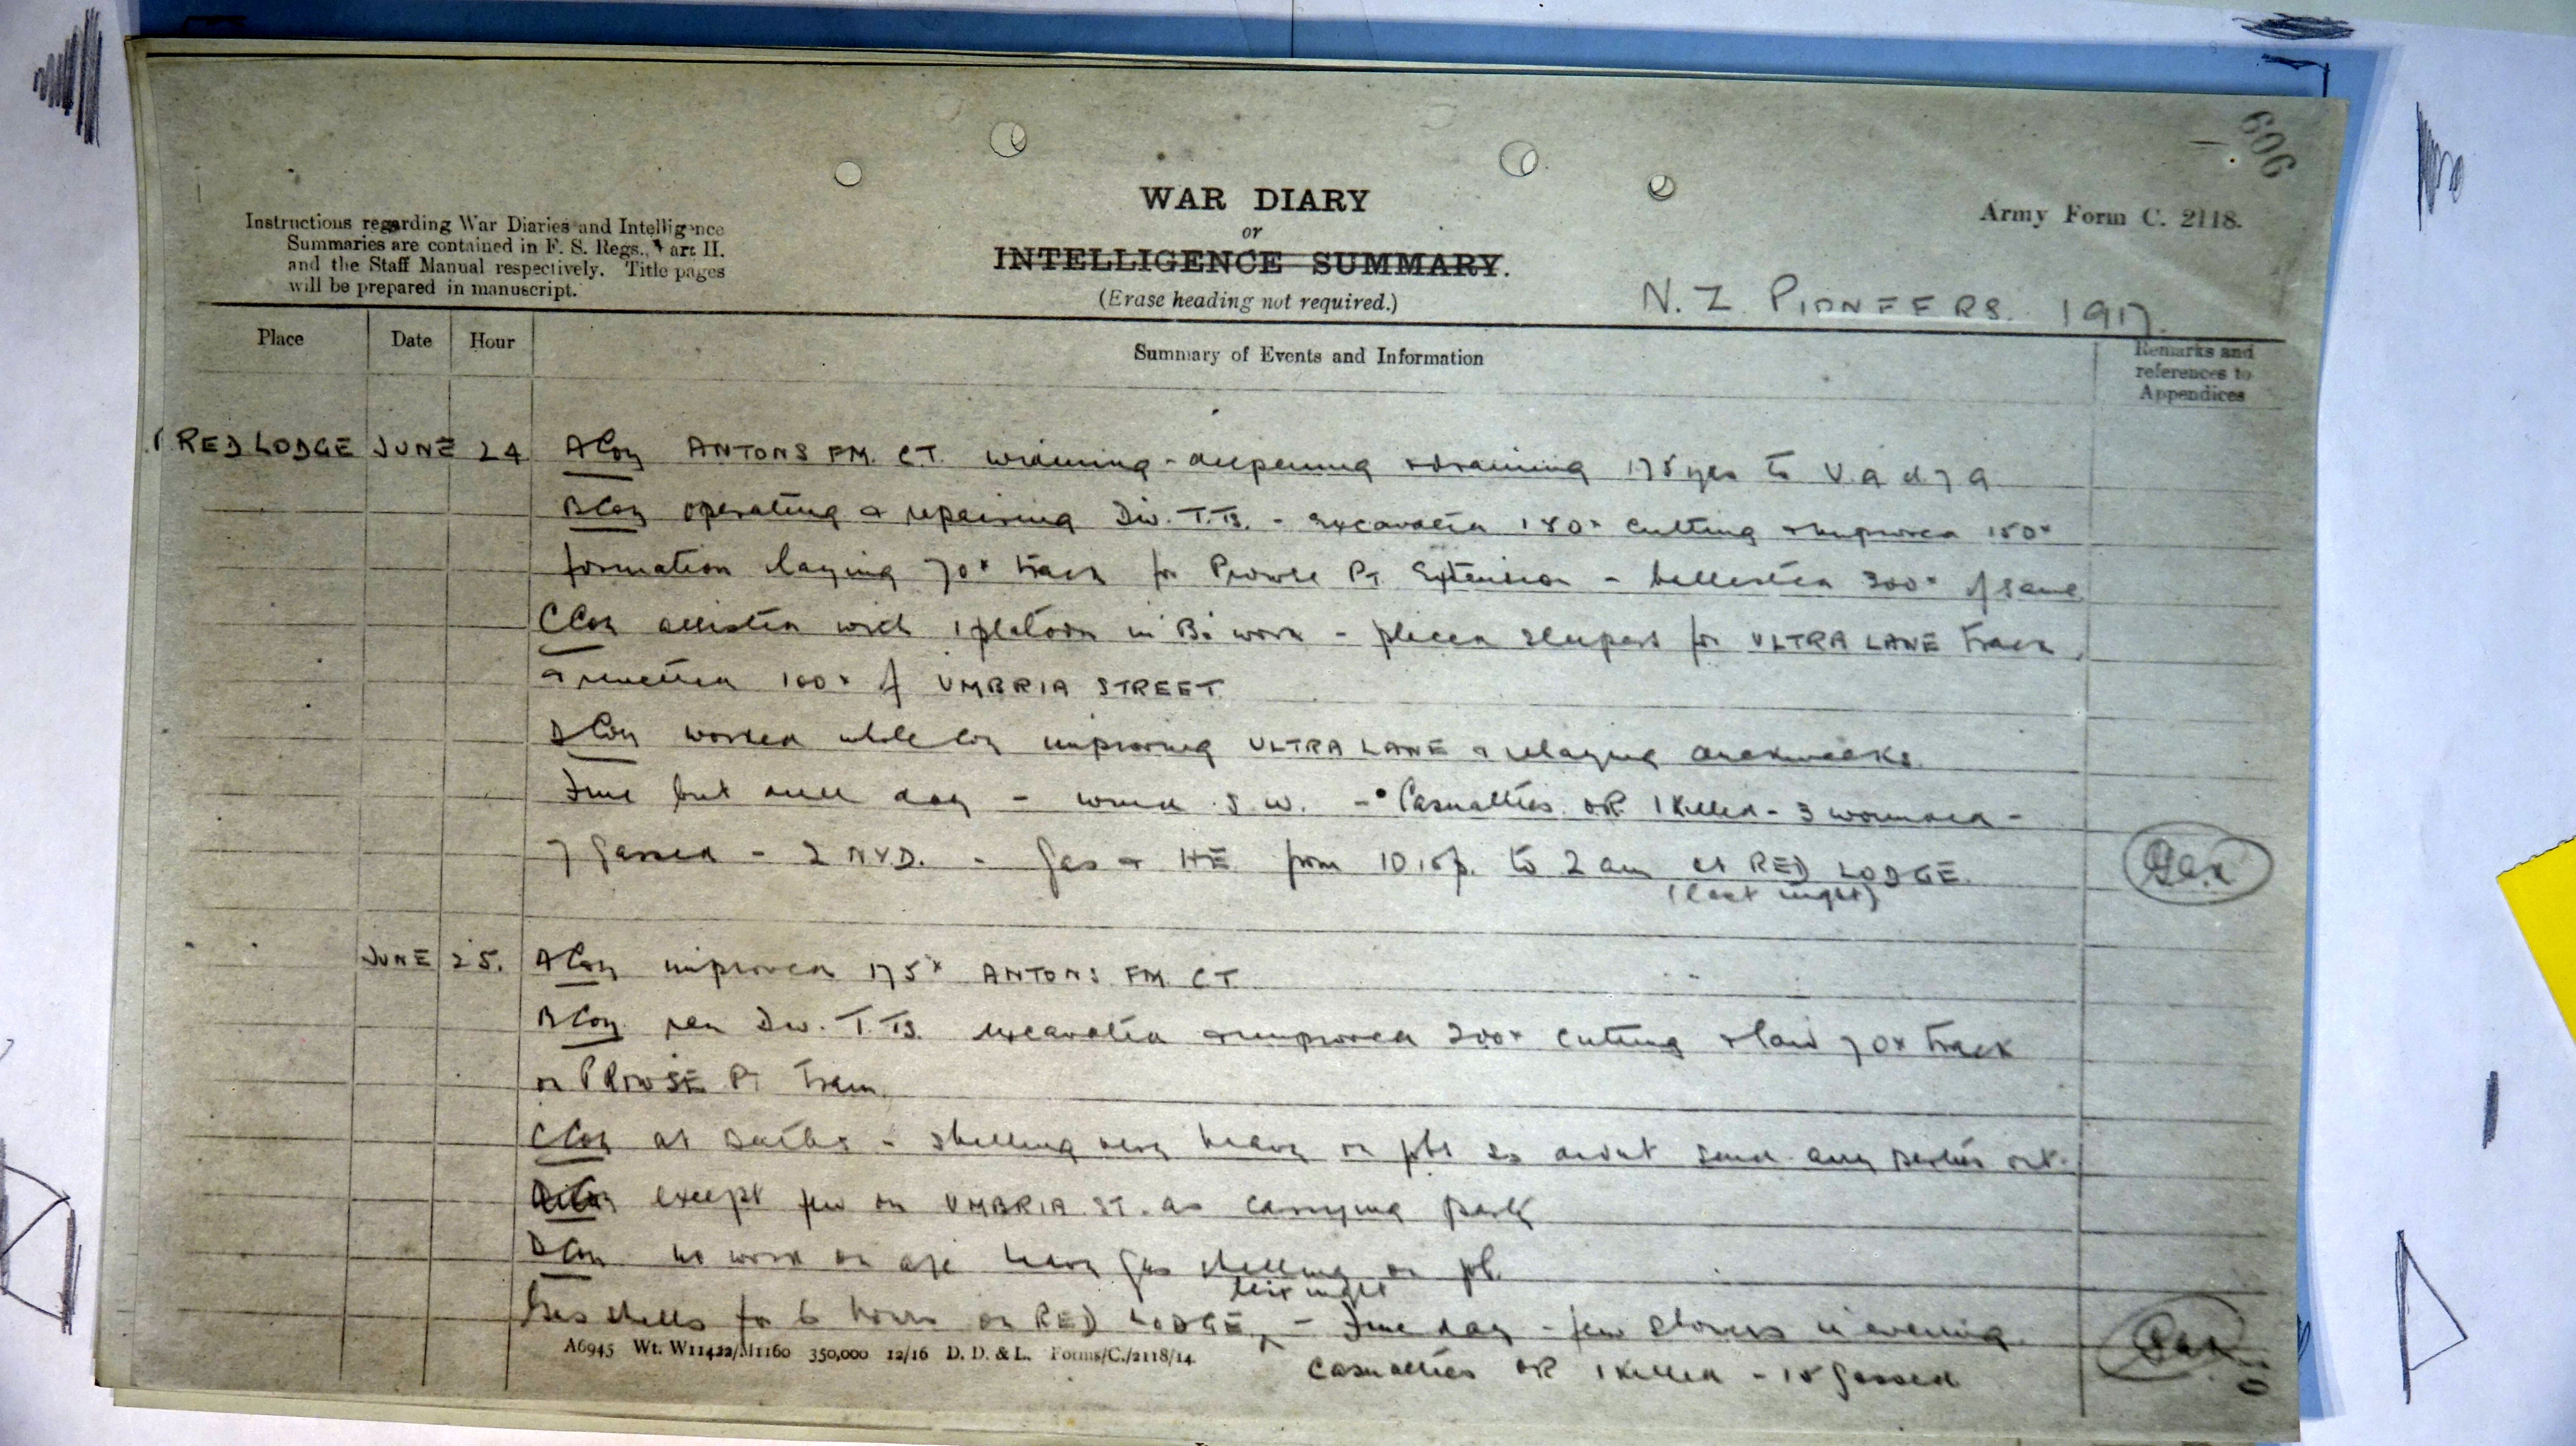 606
WAR DIARY
or
INTELLIGENCE SUMMARY.
(Erase heading not required.)
Army Form C. 2118.
Instructions regarding War Diaries and Intelligence
Summaries are contained in F. S. Regs., Part II.
and the Staff Manual respectively. Title pages
will be prepared in manuscript.
N. Z. PIONEERS. 1917.
Place Date Hour Summary of Events and Information Remarks and
references to
Appendices
RED LODGE JUNE 24 A Coy ANTONS FM. C.T. widening - deepening & draining 175 yds to
B Coy operating & repairing Div. T.T.s. - excavated 180x cutting & improved 150x
formation laying 70x track for Prowse Pt. Extension - ballasted 300x of same
C Coy assisted with 1 platoon in B's work - placed sleepers for ULTRA LANE track
& revetted 100x of UMBRIA STREET
D Coy worked whole Coy improving ULTRA LANE & relaying duckwalks.
Fine but dull day - wind S.W. - Casualties OR 1 killed - 3 wounded -
7 gassed - 2 NYD. - Gas & HE from 10.15p. to 2 am at RED LODGE.
(last night)
JUNE 25. A Coy improved 175x ANTONS FM. CT
B Coy ran Div. T.T.s. excavated & improved 200x cutting & laid 70x track
on PROWSE Pt Tram
C Coy at Baths - shelling very heavy on jobs so didnt send any parties out.
except few on UMBRIA ST. as carrying party
D Coy no work on a/c heavy gas shelling on job.
Gas shells for 6 hours on RED LODGE last night - Fine day - few showers in evening
Casualties OR 1 killed - 15 gassed
A6945 Wt. W11422/M1160 350,000 12/16 D. D. & L. Forms/C./2118/14.